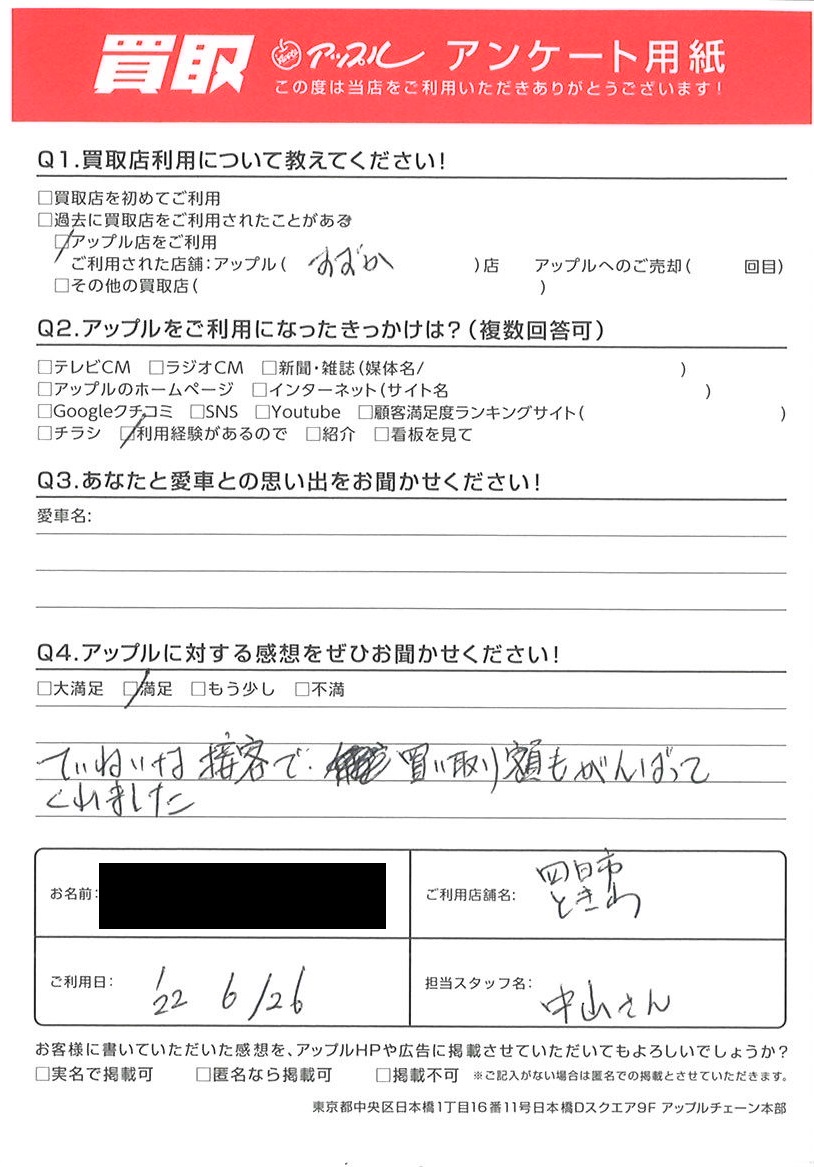 買取 アップル アンケート用紙
この度は当店をご利用いただきありがとうございます!
Q1.買取店利用について教えてください!
□買取店を初めてご利用
□過去に買取店をご利用されたことがある
□アップル店をご利用
ご利用された店舗:アップル( すずか )店 アップルへのご売却( 回目)
□その他の買取店( )
Q2.アップルをご利用になったきっかけは?(複数回答可)
□テレビCM □ラジオCM □新聞・雑誌(媒体名/ )
□アップルのホームページ □インターネット(サイト名 )
□Googleクチコミ □SNS □Youtube □顧客満足度ランキングサイト( )
□チラシ □利用経験があるので □紹介 □看板を見て
Q3.あなたと愛車との思い出をお聞かせください!
愛車名:
Q4.アップルに対する感想をぜひお聞かせください!
□大満足 □満足 □もう少し □不満
ていねいな接客で 買い取り額もがんばって
くれました
お名前:
ご利用店舗名: 四日市
ときわ
ご利用日: '22 6/26
担当スタッフ名: 中山さん
お客様に書いていただいた感想を、アップルHPや広告に掲載させていただいてもよろしいでしょうか?
□実名で掲載可 □匿名なら掲載可 □掲載不可 ※ご記入がない場合は匿名での掲載とさせていただきます。
東京都中央区日本橋1丁目16番11号日本橋Dスクエア9F アップルチェーン本部